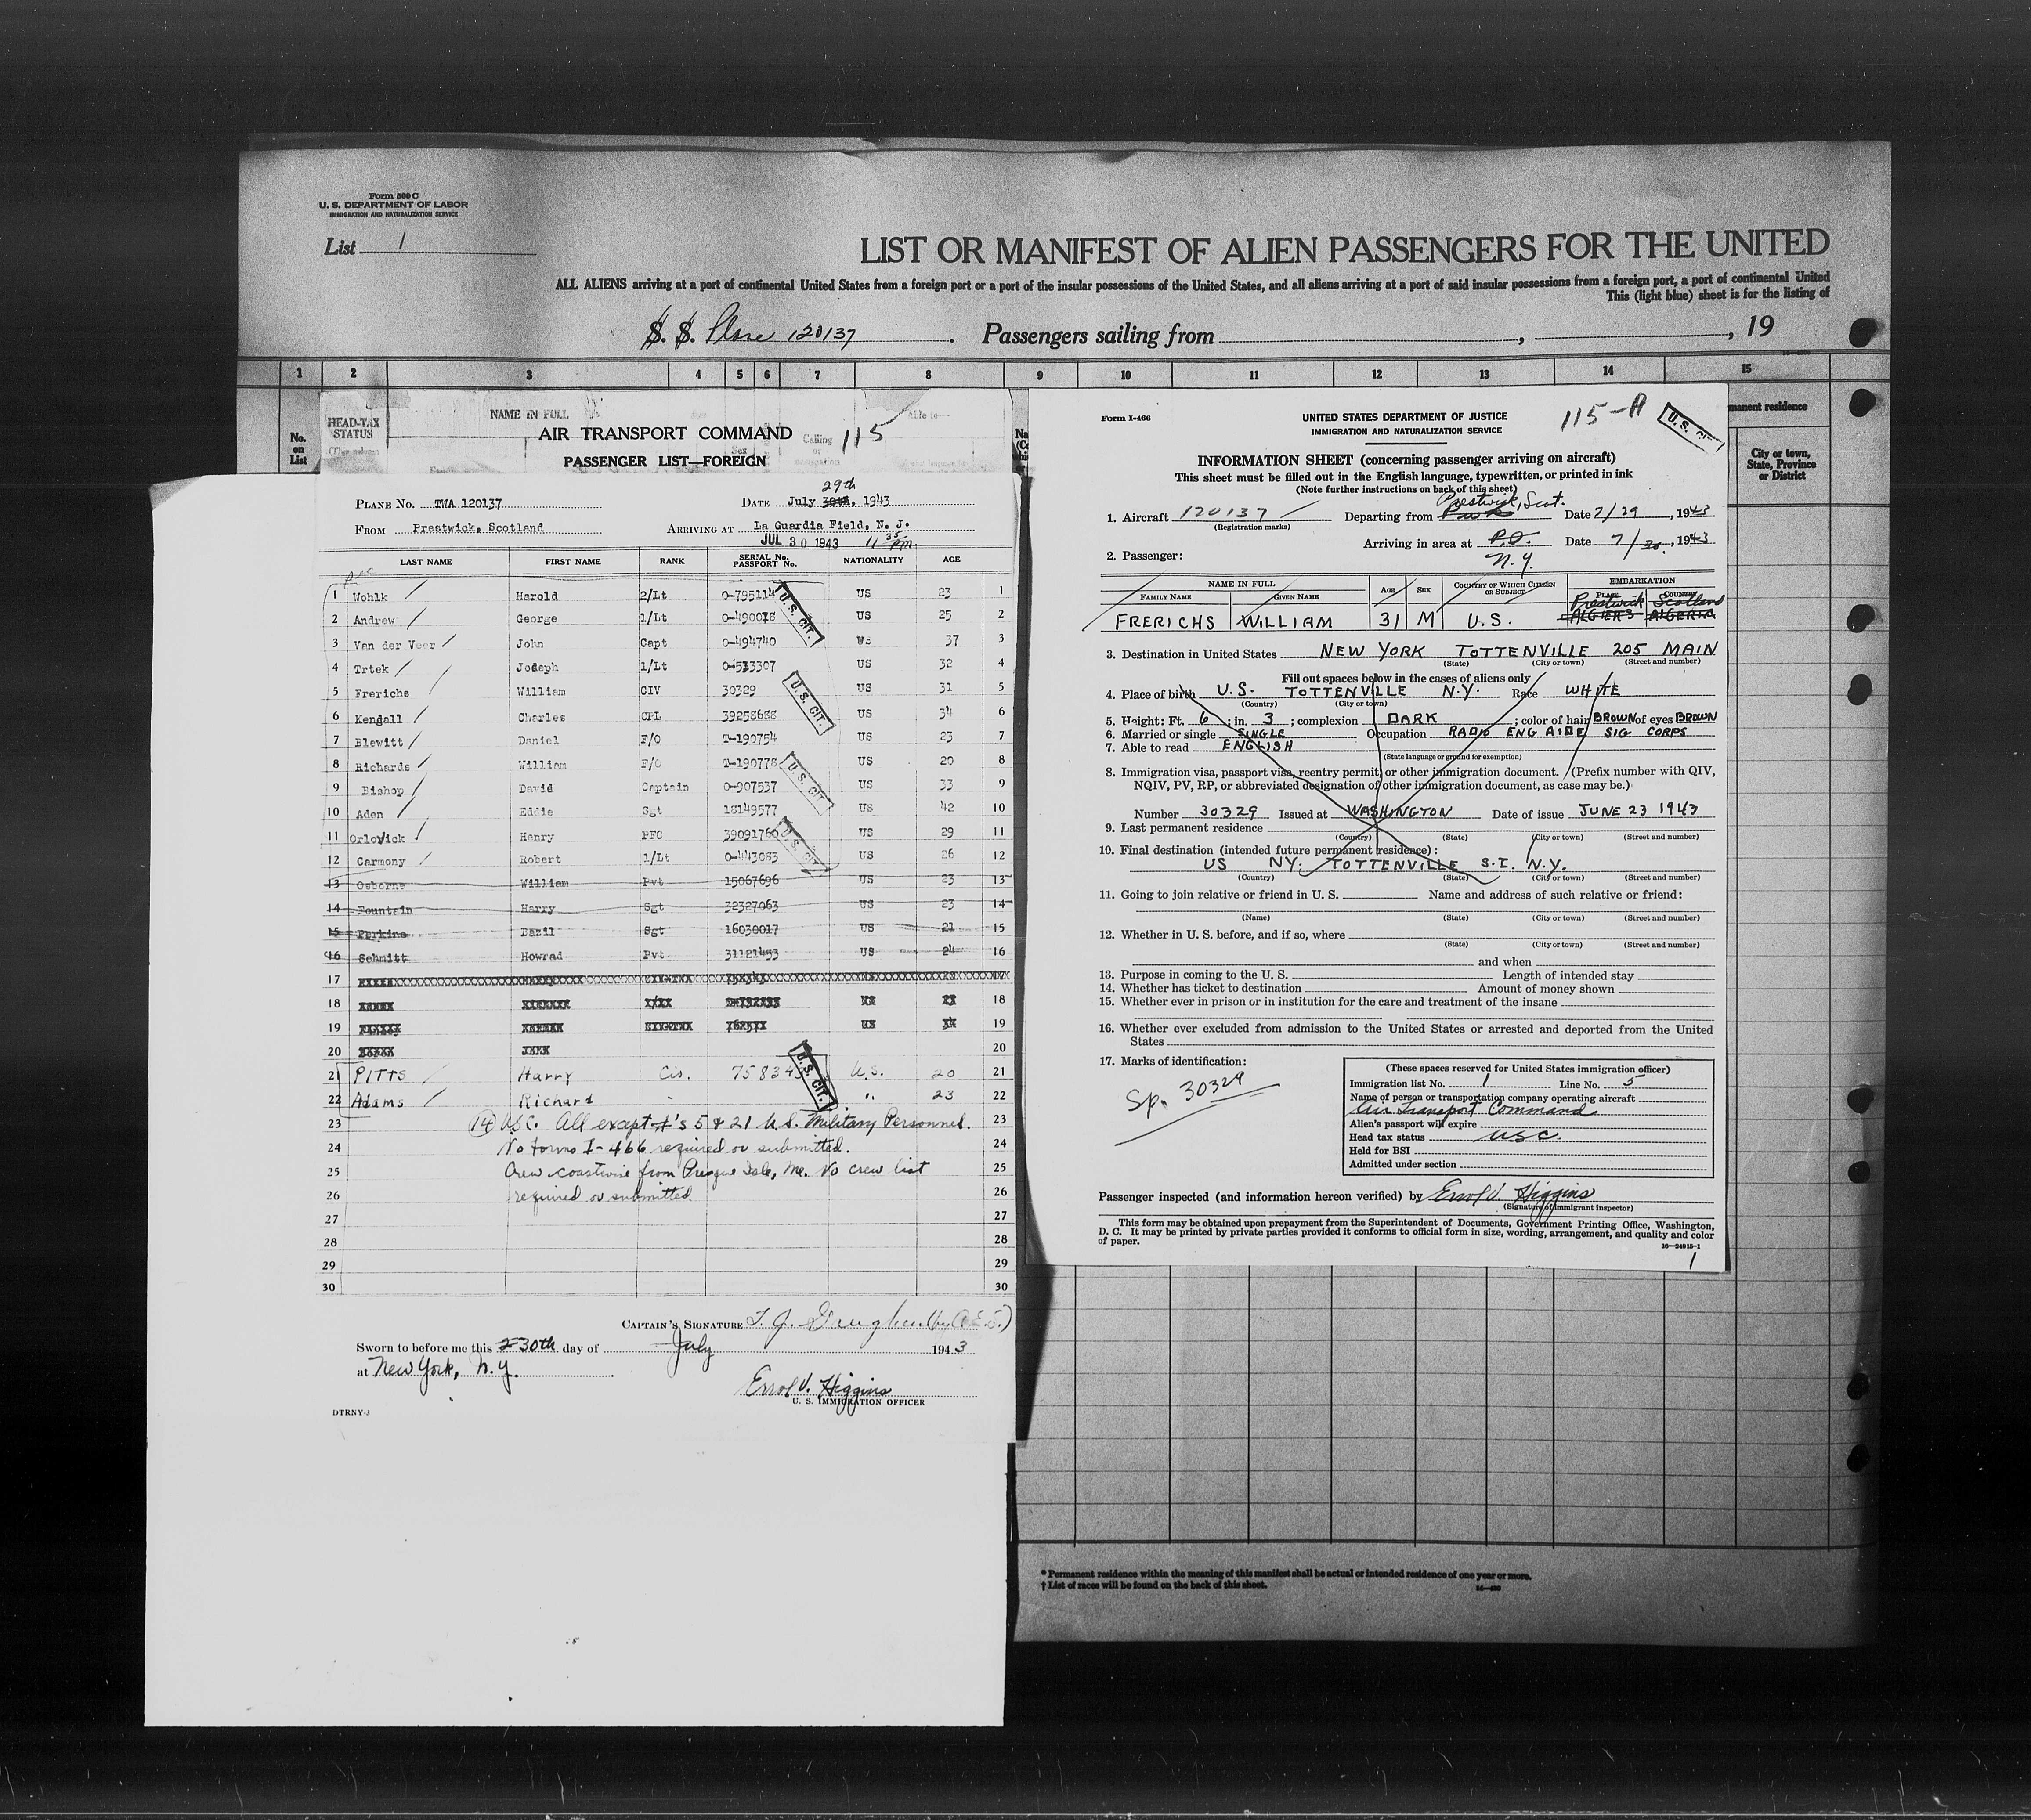 Form 500 C
U. S. DEPARTMENT OF LABOR
IMMIGRATION AND NATURALIZATION SERVICE
List 1
LIST OR MANIFEST OF ALIEN PASSENGERS FOR THE UNITED
ALL ALIENS arriving at a port of continental United States from a foreign port or a port of the insular possessions of the United States, and all aliens arriving at a port of said insular possessions from a foreign port, a port of continental United
This (light blue) sheet is for the listing of
S. S. Plane 120137 . Passengers sailing from , , 19
1 2 3 4 5 6 7 8 9 10 11 12 13 14 15
No. on List
HEAD-TAX STATUS
NAME IN FULL
Able to—
Sex
Calling or occupation
manent residence
City or town, State, Province or District
AIR TRANSPORT COMMAND
115
PASSENGER LIST—FOREIGN
29th
PLANE NO. TWA 120137 DATE July 30th, 1943
FROM Prestwick, Scotland ARRIVING AT La Guardia Field, N. J.
JUL 30 1943 11 35 PM
LAST NAME FIRST NAME RANK SERIAL NO. PASSPORT NO. NATIONALITY AGE
1 Wohlk Harold 2/Lt 0-795114 US 23 1
2 Andrew George 1/Lt 0-490018 US 25 2
3 Van der Veer John Capt 0-494740 US 37 3
4 Trtek Joseph 1/Lt 0-533307 US 32 4
5 Frerichs William CIV 30329 US 31 5
6 Kendall Charles CPL 39258688 US 34 6
7 Blewitt Daniel F/O T-190754 US 23 7
8 Richards William F/O T-190778 US 20 8
9 Bishop David Captain 0-907537 US 33 9
10 Aden Eddie Sgt 18149577 US 42 10
11 Orlovick Henry PFC 39091760 US 29 11
12 Carmony Robert 1/Lt 0-443083 US 26 12
13 Osborne William Pvt 15067696 US 23 13
14 Fountain Harry Sgt 32327063 US 23 14
15 Perkins Basil Sgt 16030017 US 21 15
16 Schmitt Howrad Pvt 31121453 US 24 16
17 17
18 18
19 US 19
20 20
21 PITTS Harry Civ. 758343 U.S. 20 21
22 Adams Richard " 23 22
U. S. CIT.
U. S. CIT.
U. S. CIT.
U. S. CIT.
U. S. CIT.
23 (14) USC. All except #'s 5 & 21 U.S. Military Personnel. 23
24 No forms I-466 required or submitted. 24
25 Crew coastwise from Presque Isle, Me. No crew list 25
26 required or submitted. 26
27 27
28 28
29 29
30 30
CAPTAIN'S SIGNATURE
Sworn to before me this 30th day of July 1943
at New York, N.Y.
Errol V. Higgins
U. S. IMMIGRATION OFFICER
DTRNY-J
Form I-466
UNITED STATES DEPARTMENT OF JUSTICE
IMMIGRATION AND NATURALIZATION SERVICE
115-A
U. S. CIT.
INFORMATION SHEET (concerning passenger arriving on aircraft)
This sheet must be filled out in the English language, typewritten, or printed in ink
(Note further instructions on back of this sheet)
Prestwick, Scot.
1. Aircraft 120137 Departing from Date 7/29, 1943
(Registration marks)
Arriving in area at Date 7/30, 1943
N.Y.
2. Passenger:
NAME IN FULL
FAMILY NAME GIVEN NAME AGE SEX COUNTRY OF WHICH CITIZEN OR SUBJECT EMBARKATION PLACE COUNTRY
Prestwick Scotland
FRERICHS WILLIAM 31 M U.S. ALGIERS ALGERIA
3. Destination in United States NEW YORK TOTTENVILLE 205 MAIN
(State) (City or town) (Street and number)
Fill out spaces below in the cases of aliens only
4. Place of birth U.S. TOTTENVILLE N.Y. Race WHITE
(Country) (City or town)
5. Height: Ft. 6; in. 3; complexion DARK; color of hair BROWN of eyes BROWN
6. Married or single SINGLE Occupation RADIO ENG AIDE SIG CORPS
7. Able to read ENGLISH
(State language or ground for exemption)
8. Immigration visa, passport visa, reentry permit, or other immigration document. (Prefix number with QIV,
NQIV, PV, RP, or abbreviated designation of other immigration document, as case may be.)
Number 30329 Issued at WASHINGTON Date of issue JUNE 23 1943
9. Last permanent residence
(Country) (State) (City or town) (Street and number)
10. Final destination (intended future permanent residence):
US NY. TOTTENVILLE S.I. N.Y.
(Country) (State) (City or town) (Street and number)
11. Going to join relative or friend in U. S. Name and address of such relative or friend:
(Name) (State) (City or town) (Street and number)
12. Whether in U. S. before, and if so, where
(State) (City or town) (Street and number)
and when
13. Purpose in coming to the U. S. Length of intended stay
14. Whether has ticket to destination Amount of money shown
15. Whether ever in prison or in institution for the care and treatment of the insane
16. Whether ever excluded from admission to the United States or arrested and deported from the United
States
17. Marks of identification:
Sp. 30329
(These spaces reserved for United States immigration officer)
Immigration list No. 1 Line No. 5
Name of person or transportation company operating aircraft
Air Transport Command
Alien's passport will expire
Head tax status USC.
Held for BSI
Admitted under section
Passenger inspected (and information hereon verified) by Errol V. Higgins
(Signature of immigrant inspector)
This form may be obtained upon prepayment from the Superintendent of Documents, Government Printing Office, Washington,
D. C. It may be printed by private parties provided it conforms to official form in size, wording, arrangement, and quality and color
of paper.
16—24915-1
1
* Permanent residence within the meaning of this manifest shall be actual or intended residence of one year or more.
† List of races will be found on the back of this sheet.